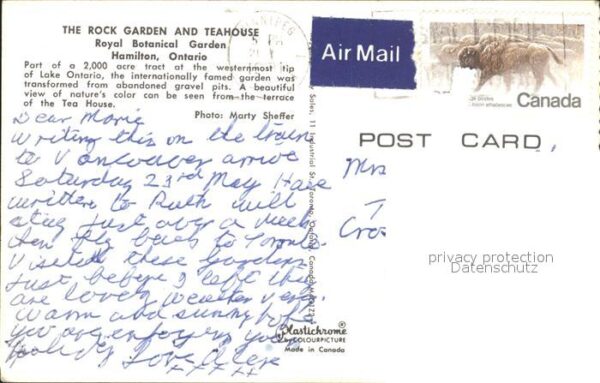 THE ROCK GARDEN AND TEAHOUSE
Royal Botanical Garden
Hamilton, Ontario
Part of a 2,000 acre tract at the westernmost tip
of Lake Ontario, the internationally famed garden was
transformed from abandoned gravel pits. A beautiful
view of nature's color can be seen from the terrace
of the Tea House.
Photo: Marty Sheffer
Dear Marie
Writing this on the train
to Vancouver arrive
Saturday 23rd May Have
written to Ruth will
stay just over a week
then fly back to Toronto
Visited these Gardens
just before I left they
are lovely Weather very
warm and sunny hope
you are enjoying your
holiday Love
WINNIPEG
Air Mail
Canada
POST CARD
Mrs
T
Cro
privacy protection
Datenschutz
Sales, 11 Industrial St., Toronto, Ontario, Canada
Plastichrome®
COLOURPICTURE
Made in Canada